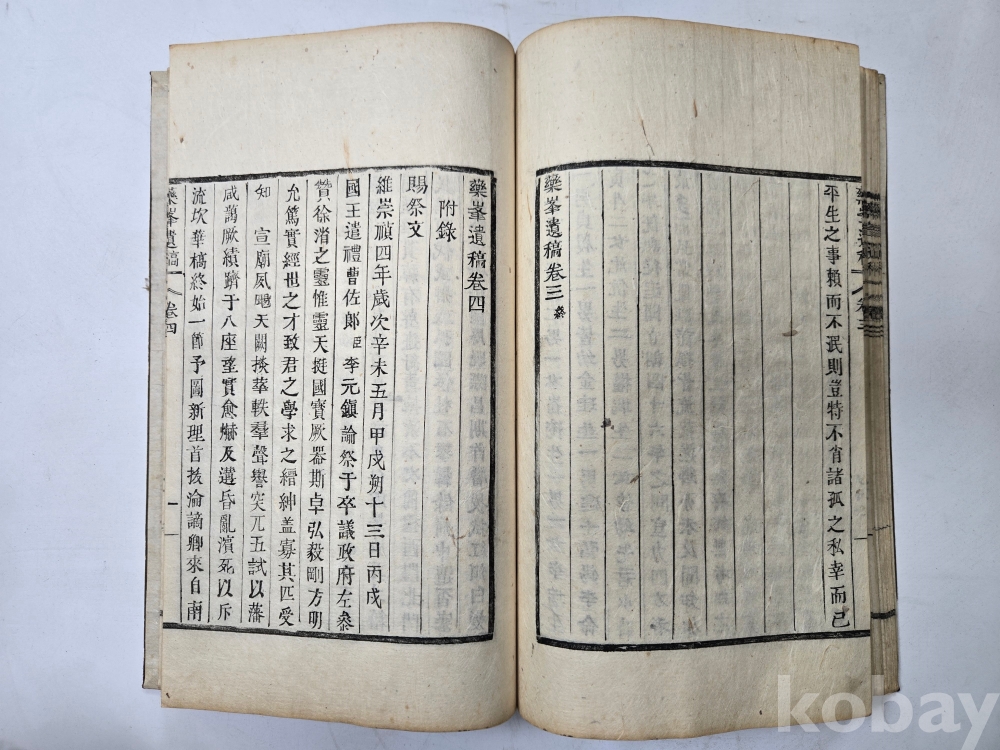 平生之事賴而不泯則豈特不肖諸孤之私幸而已
藥峯遺稿卷三 終
藥峯遺稿卷四
附錄
賜祭文
維崇禎四年歲次辛未五月甲戌朔十三日丙戌
國王遣禮曹佐郞臣李元鎭諭祭于卒議政府左參
贊徐渻之靈惟靈天挺國寶厥器斯卓弘毅剛方明
允篤實經也之才致君之學求之縉紳盖寡其匹受
知 宣廟夙颺天闕掞華軼羣聲譽突兀五試以藩
咸藹厥績躋于八座望實愈爀及遘昏亂濱死以斥
流坎華稿終始一節予圖新理首拔淪謫卿來自南
藥峯遺稿 卷四 一
kobay